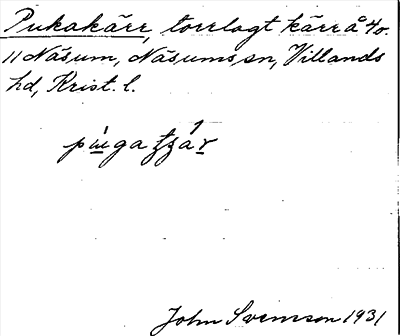 Pukakärr, torrlagt kärr å 4/0.
11 Näsum, Näsums sn, Villands
hd, Krist. l.
John Svensson 1931